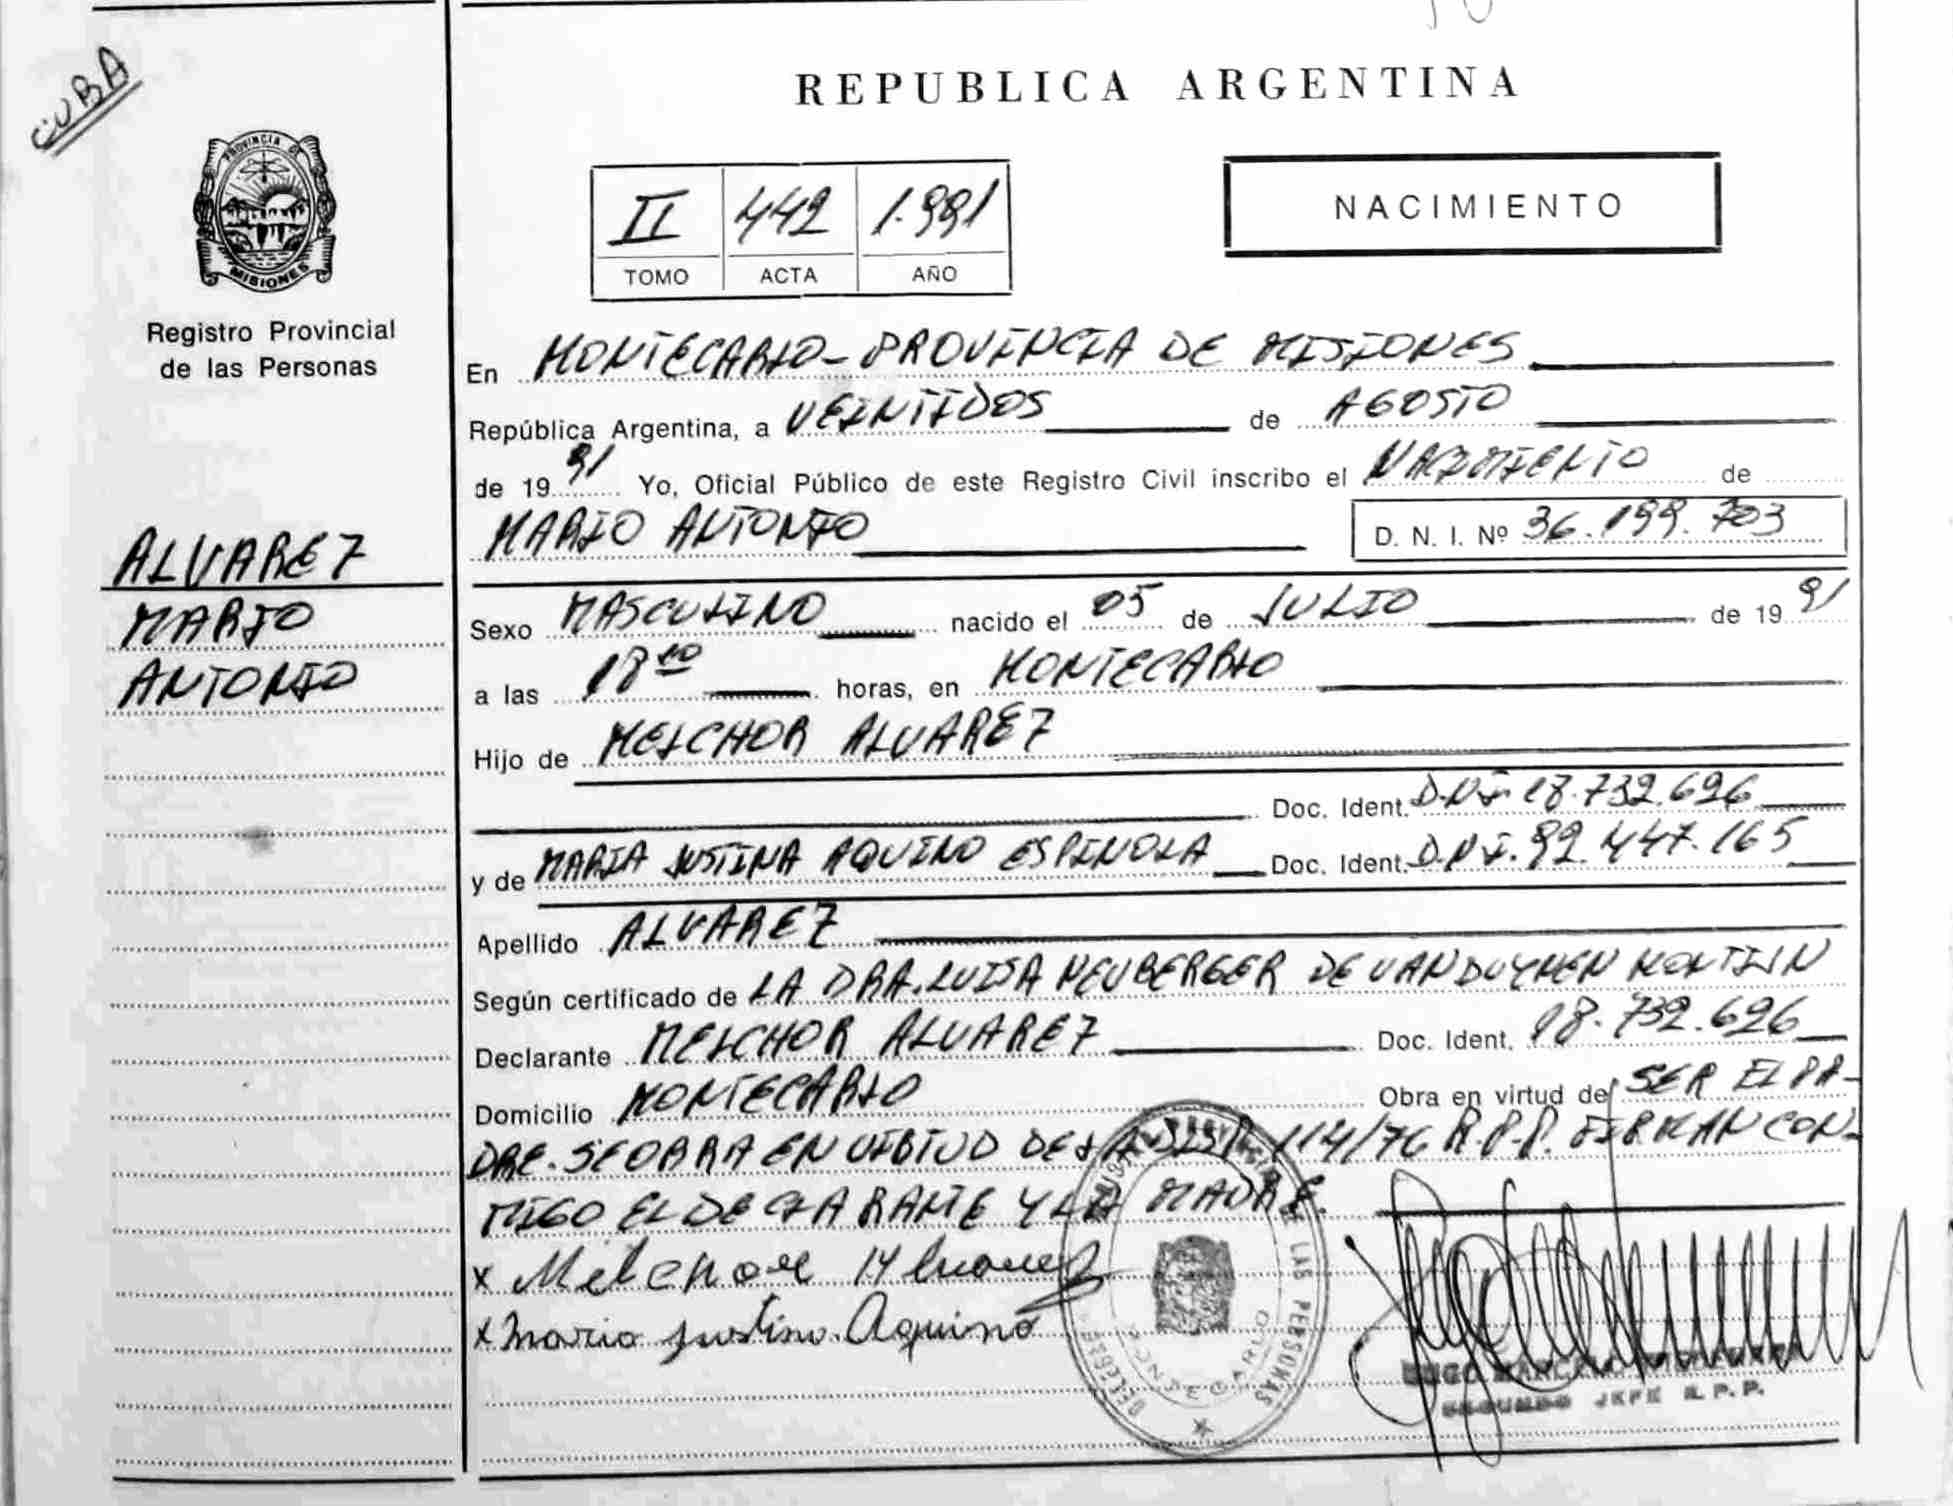 CUBA
PROVINCIA DE
MISIONES
Registro Provincial
de las Personas
ALVAREZ
MARIO
ANTONIO
REPUBLICA ARGENTINA
II 442 1.991
TOMO ACTA AÑO
NACIMIENTO
En MONTECARLO - PROVINCIA DE MISIONES
República Argentina, a VEINTIDOS de AGOSTO
de 19 91 Yo, Oficial Público de este Registro Civil inscribo el NACIMIENTO de
MARIO ANTONIO D. N. I. Nº 36.199.703
Sexo MASCULINO nacido el 05 de JULIO de 19 91
a las 18 10 horas, en MONTECARLO
Hijo de MELCHOR ALVAREZ
Doc. Ident. D.N.I. 18.732.626
y de MARIA JUSTINA AQUINO ESPINOLA Doc. Ident. D.N.I. 92.447.165
Apellido ALVAREZ
Según certificado de LA DRA. LUISA NEUBERGER DE VANDUYNEN
Declarante MELCHOR ALVAREZ Doc. Ident. 18.732.626
Domicilio MONTECARLO Obra en virtud de SER EL PA-
DRE. SE OBRA EN VIRTUD DE LA DISP. 114/76 R.P.P. FIRMAN CON-
MIGO EL DECLARANTE Y LA MADRE.
x
x Maria Justina Aquino
LAS PERSONAS
MONTECARLO
SEGUNDO JEFE R. P. P.